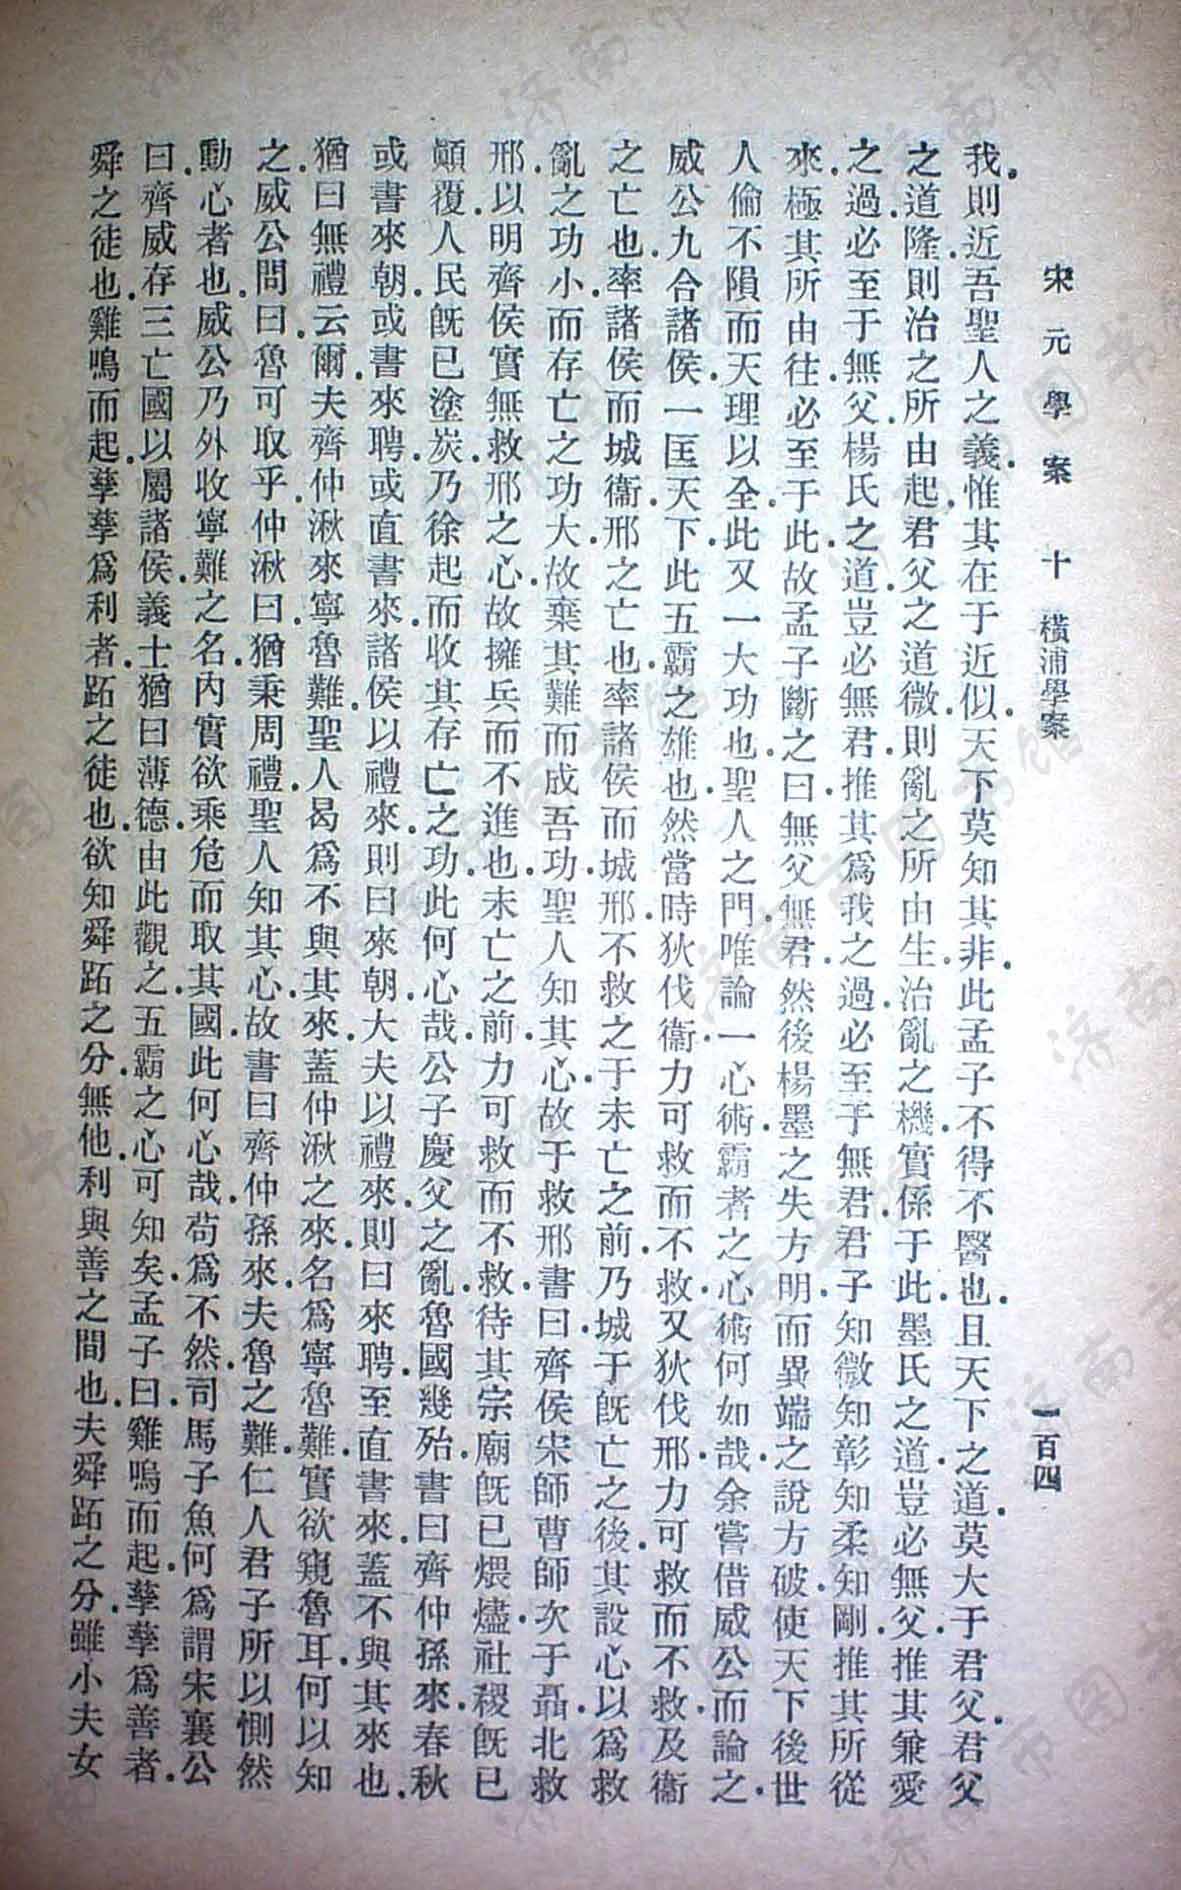 宋元學案 十 橫浦學案 一百四
我則近吾聖人之義惟其在于近似天下莫知其非此孟子不得不醫也且天下之道莫大于君父君父
之道隆則治之所由起君父之道微則亂之所由生治亂之機實係于此墨氏之道豈必無父推其兼愛
之過必至于無父楊氏之道豈必無君推其爲我之過必至于無君君子知微知彰知柔知剛推其所從
來極其所由往必至于此故孟子斷之曰無父無君然後楊墨之失方明而異端之說方破使天下後世
人倫不隕而天理以全此又一大功也聖人之門唯論一心術霸者之心術何如哉余嘗借威公而論之
威公九合諸侯一匡天下此五霸之雄也然當時狄伐衞力可救而不救又狄伐邢力可救而不救及衞
之亡也率諸侯而城衞邢之亡也率諸侯而城邢不救之于未亡之前乃城于旣亡之後其設心以爲救
亂之功小而存亡之功大故棄其難而成吾功聖人知其心故于救邢書曰齊侯宋師曹師次于聶北救
邢以明齊侯實無救邢之心故擁兵而不進也未亡之前力可救而不救待其宗廟旣已煨燼社稷旣已
顚覆人民旣已塗炭乃徐起而收其存亡之功此何心哉公子慶父之亂魯國幾殆書曰齊仲孫來春秋
或書來朝或書來聘或直書來諸侯以禮來則曰來朝大夫以禮來則曰來聘至直書來蓋不與其來也
猶曰無禮云爾夫齊仲湫來寧魯難聖人曷爲不與其來蓋仲湫之來名爲寧魯難實欲窺魯耳何以知
之威公問曰魯可取乎仲湫曰猶秉周禮聖人知其心故書曰齊仲孫來夫魯之難仁人君子所以惻然
動心者也威公乃外收寧難之名內實欲乘危而取其國此何心哉苟爲不然司馬子魚何爲謂宋襄公
曰齊威存三亡國以屬諸侯義士猶曰薄德由此觀之五霸之心可知矣孟子曰雞鳴而起孳孳爲善者
舜之徒也雞鳴而起孳孳爲利者跖之徒也欲知舜跖之分無他利與善之間也夫舜跖之分雖小夫女